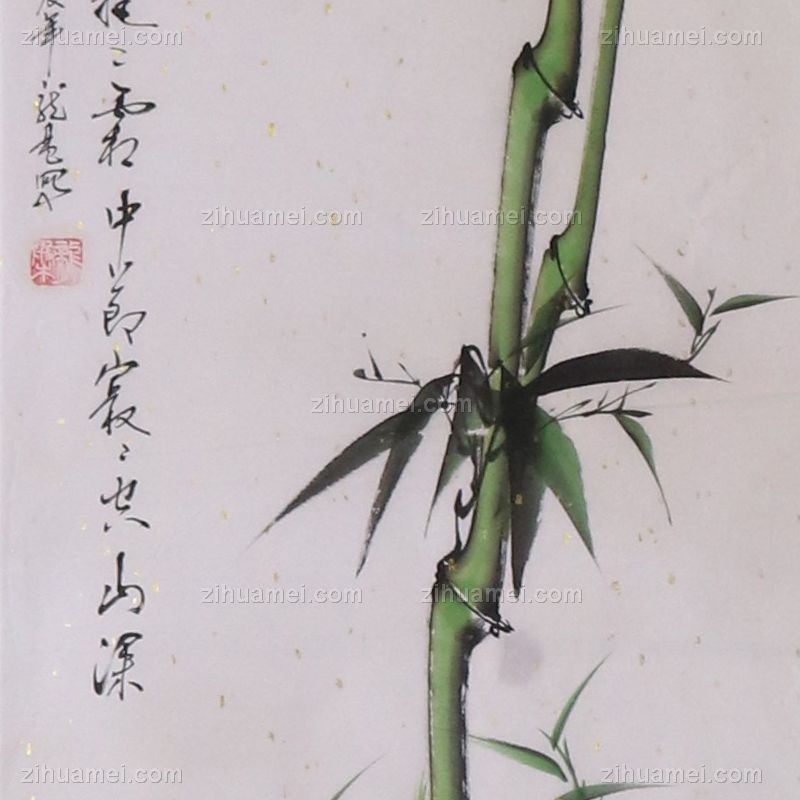 挺〻霜中节寂〻空山深
辰年龙
zihuamei.com
zihuamei.com
zihuamei.com
zihuamei.com
zihuamei.com
zihuamei.com
zihuamei.com
zihuamei.com
zihuamei.com
zihuamei.com